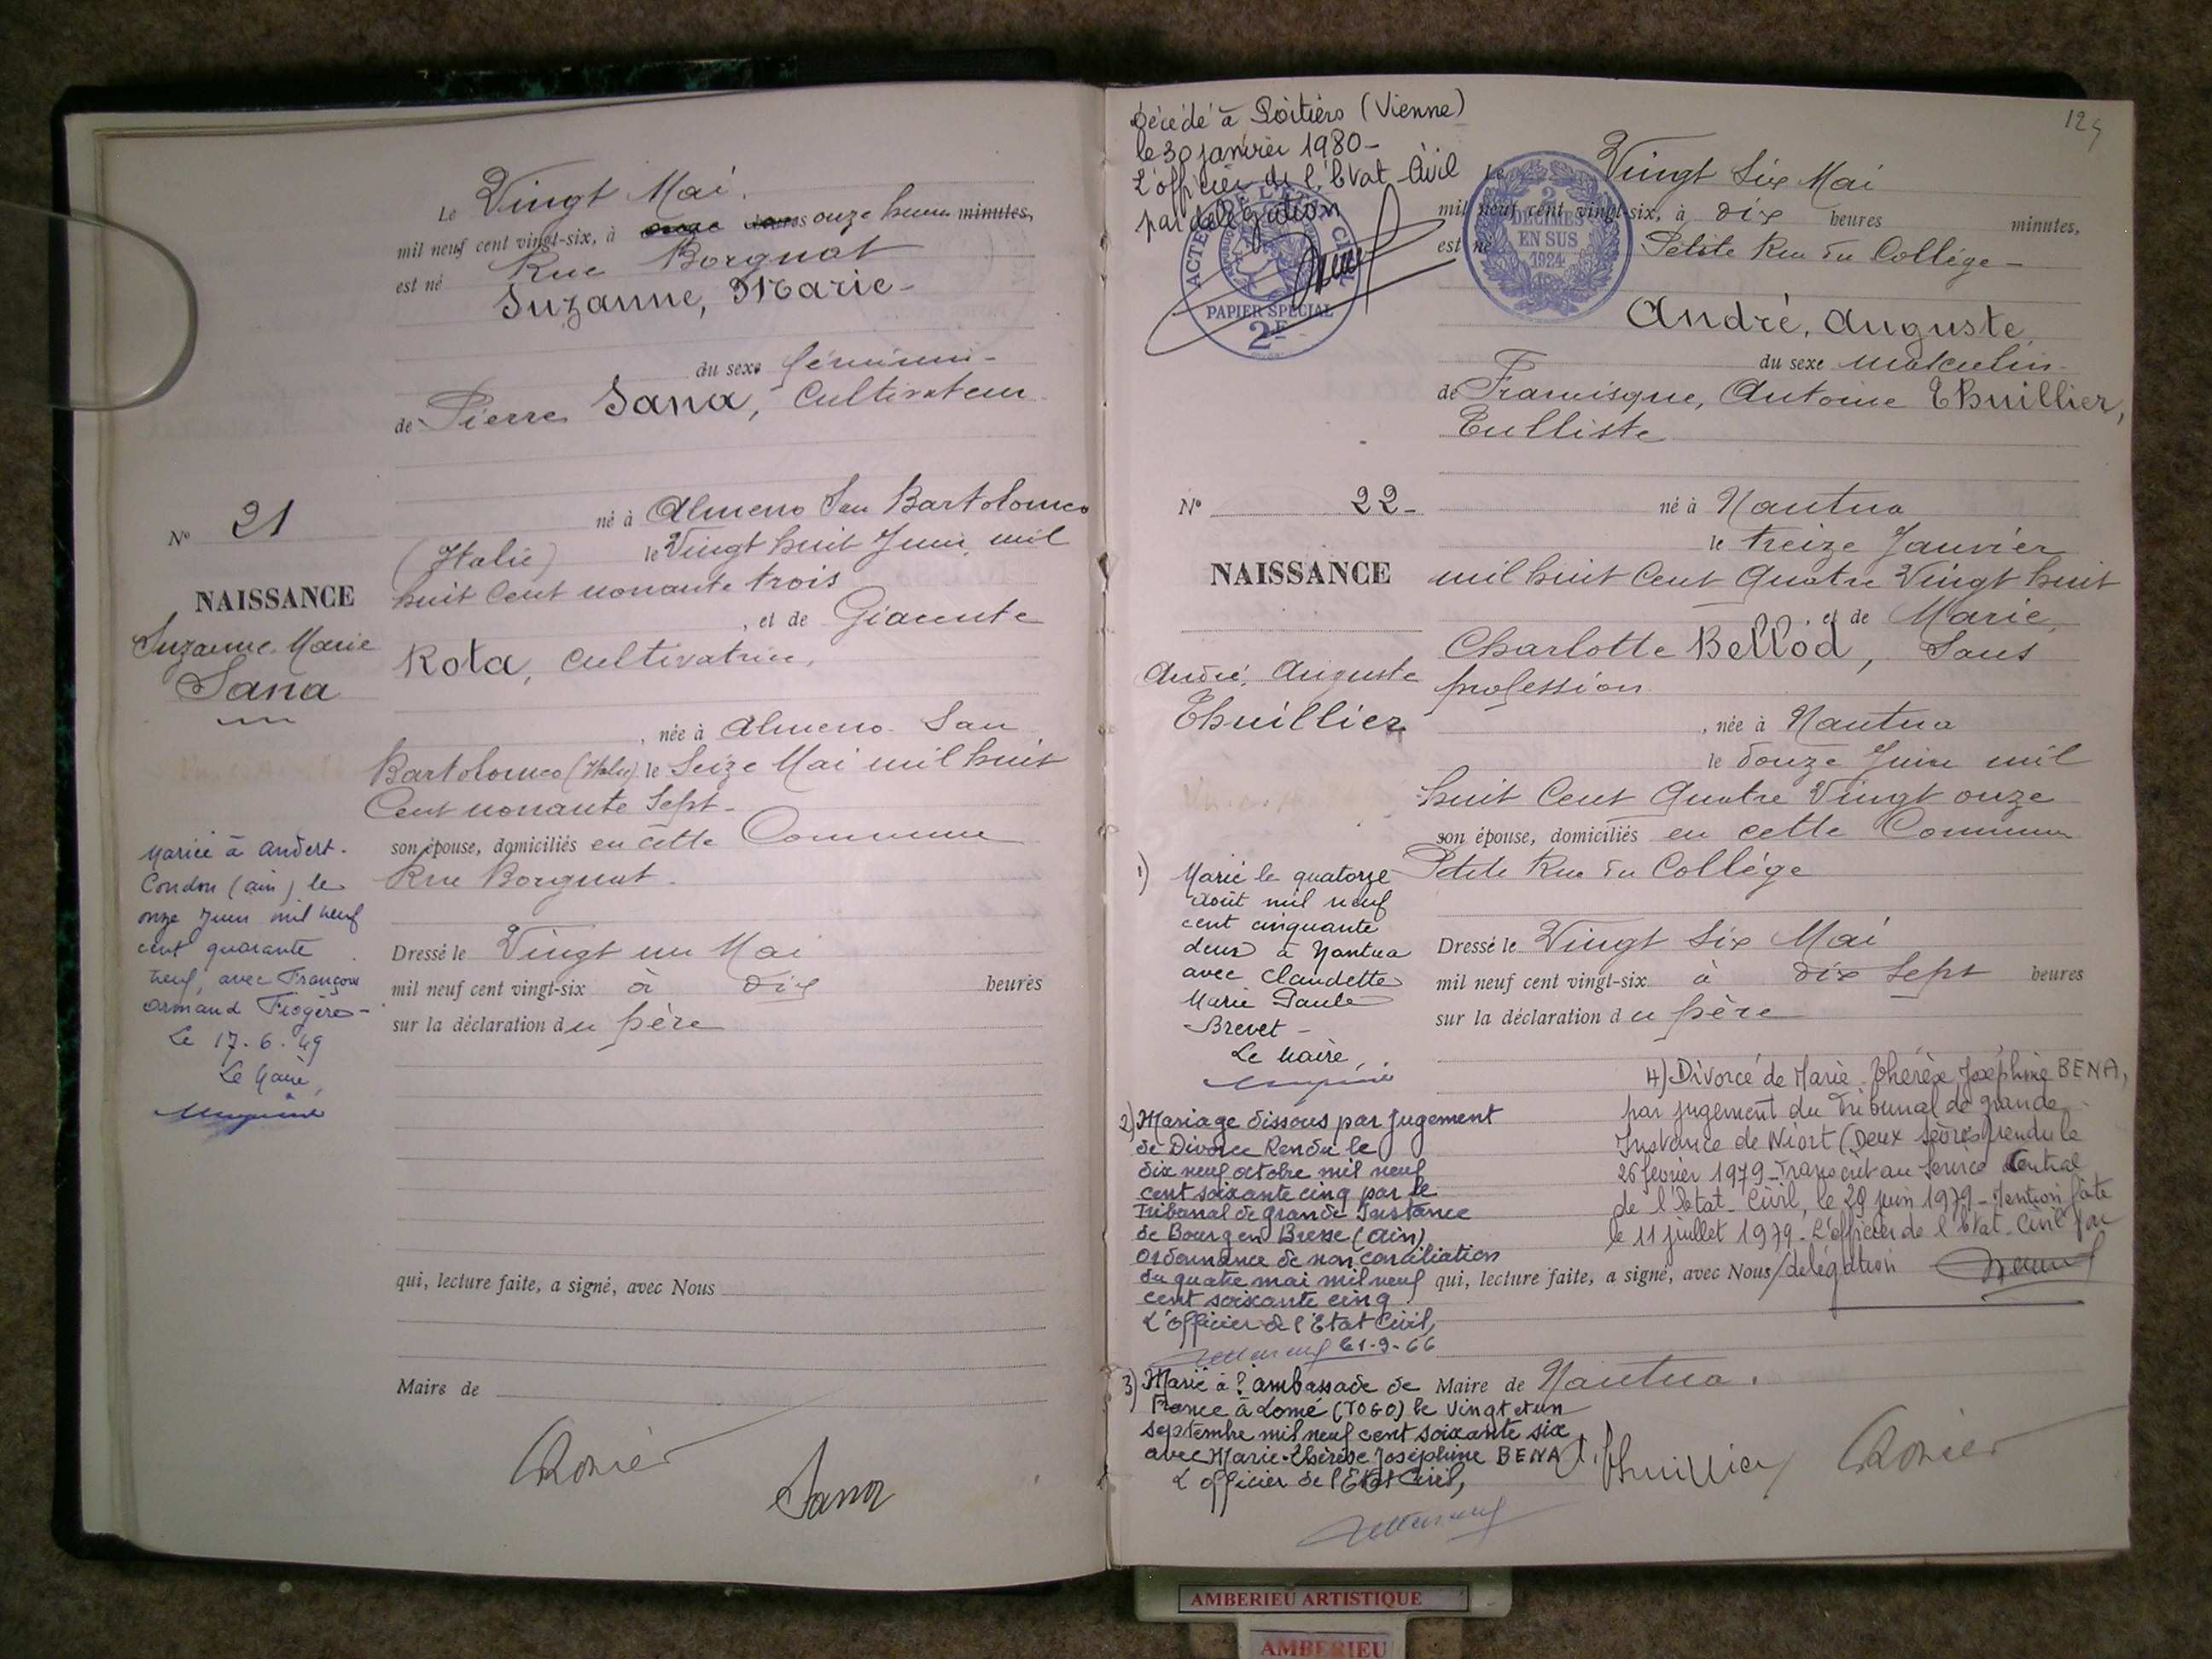 Le Vingt Mai.
mil neuf cent vingt-six, à onze heures onze heures minutes,
est né Rue Borgnat
Suzanne, Marie -
du sexe féminin -
de Pierre Sana, Cultivateur
né à Almeno San Bartolomeo
(Italie) le Vingt huit Juin mil
huit Cent nonante trois
, et de Giacente
Rota, Cultivatrice,
, née à Almeno San
Bartolomeo (Italie) le Seize Mai mil huit
Cent nonante Sept -
son épouse, domiciliés en cette Commune
Rue Borgnat -
Dressé le Vingt un Mai
mil neuf cent vingt-six à dix heures
sur la déclaration du père
qui, lecture faite, a signé, avec Nous
Maire de
Sana
N° 21
NAISSANCE
Suzanne Marie
Sana
Mariée à Andert-
Condon (ain) le
onze Juin mil neuf
cent quarante
neuf, avec François
Armand Frogère -
Le 17.6.49
Le Maire,
Décédé à Poitiers (Vienne)
le 30 janvier 1980 -
L'officier de l'Etat-Civil
par délégation
PAPIER SPÉCIAL
2F
2
DÉCIMES
EN SUS
1924
Le Vingt Six Mai
mil neuf cent vingt-six, à dix heures minutes,
est né Petite Rue du Collège -
André, Auguste
du sexe masculin -
de Francisque, Antoine Thuillier,
Tulliste
né à Nantua
le treize Janvier
mil huit Cent Quatre Vingt huit
, et de Marie,
Charlotte Bellod, Sans
profession
, née à Nantua
le douze Juin mil
huit Cent Quatre Vingt onze
son épouse, domiciliés en cette Commune
Petite Rue du Collège
Dressé le Vingt Six Mai
mil neuf cent vingt-six à dix Sept heures
sur la déclaration du père
qui, lecture faite, a signé, avec Nous
Maire de Nantua.
Thuillier
N° 22 -
NAISSANCE
André, Auguste
Thuillier
1) Marié le quatorze
Août mil neuf
cent cinquante
deux à Nantua
avec Claudette
Marie Paule
Brevet -
Le Maire,
2) Mariage dissous par jugement
de Divorce Rendu le
dix neuf octobre mil neuf
cent soixante cinq par le
Tribunal de grande Instance
de Bourg en Bresse (Ain)
Ordonnance de non conciliation
du quatre mai mil neuf
cent soixante cinq
L'Officier de l'Etat Civil,
3) Marié à l'ambassade de
France à Lomé (TOGO) le Vingt et un
septembre mil neuf cent soixante six
avec Marie-Thérèse Joséphine BENA
L'officier de l'Etat Civil,
4) Divorcé de Marie-Thérèse Joséphine BENA,
par jugement du Tribunal de grande
Instance de Niort (Deux Sèvres) rendu le
26 février 1979 - Transcrit au Service Central
de l'Etat-Civil, le 29 juin 1979 - Mention faite
le 11 juillet 1979 - L'officier de l'Etat-Civil par
délégation
AMBERIEU ARTISTIQUE
AMBERIEU